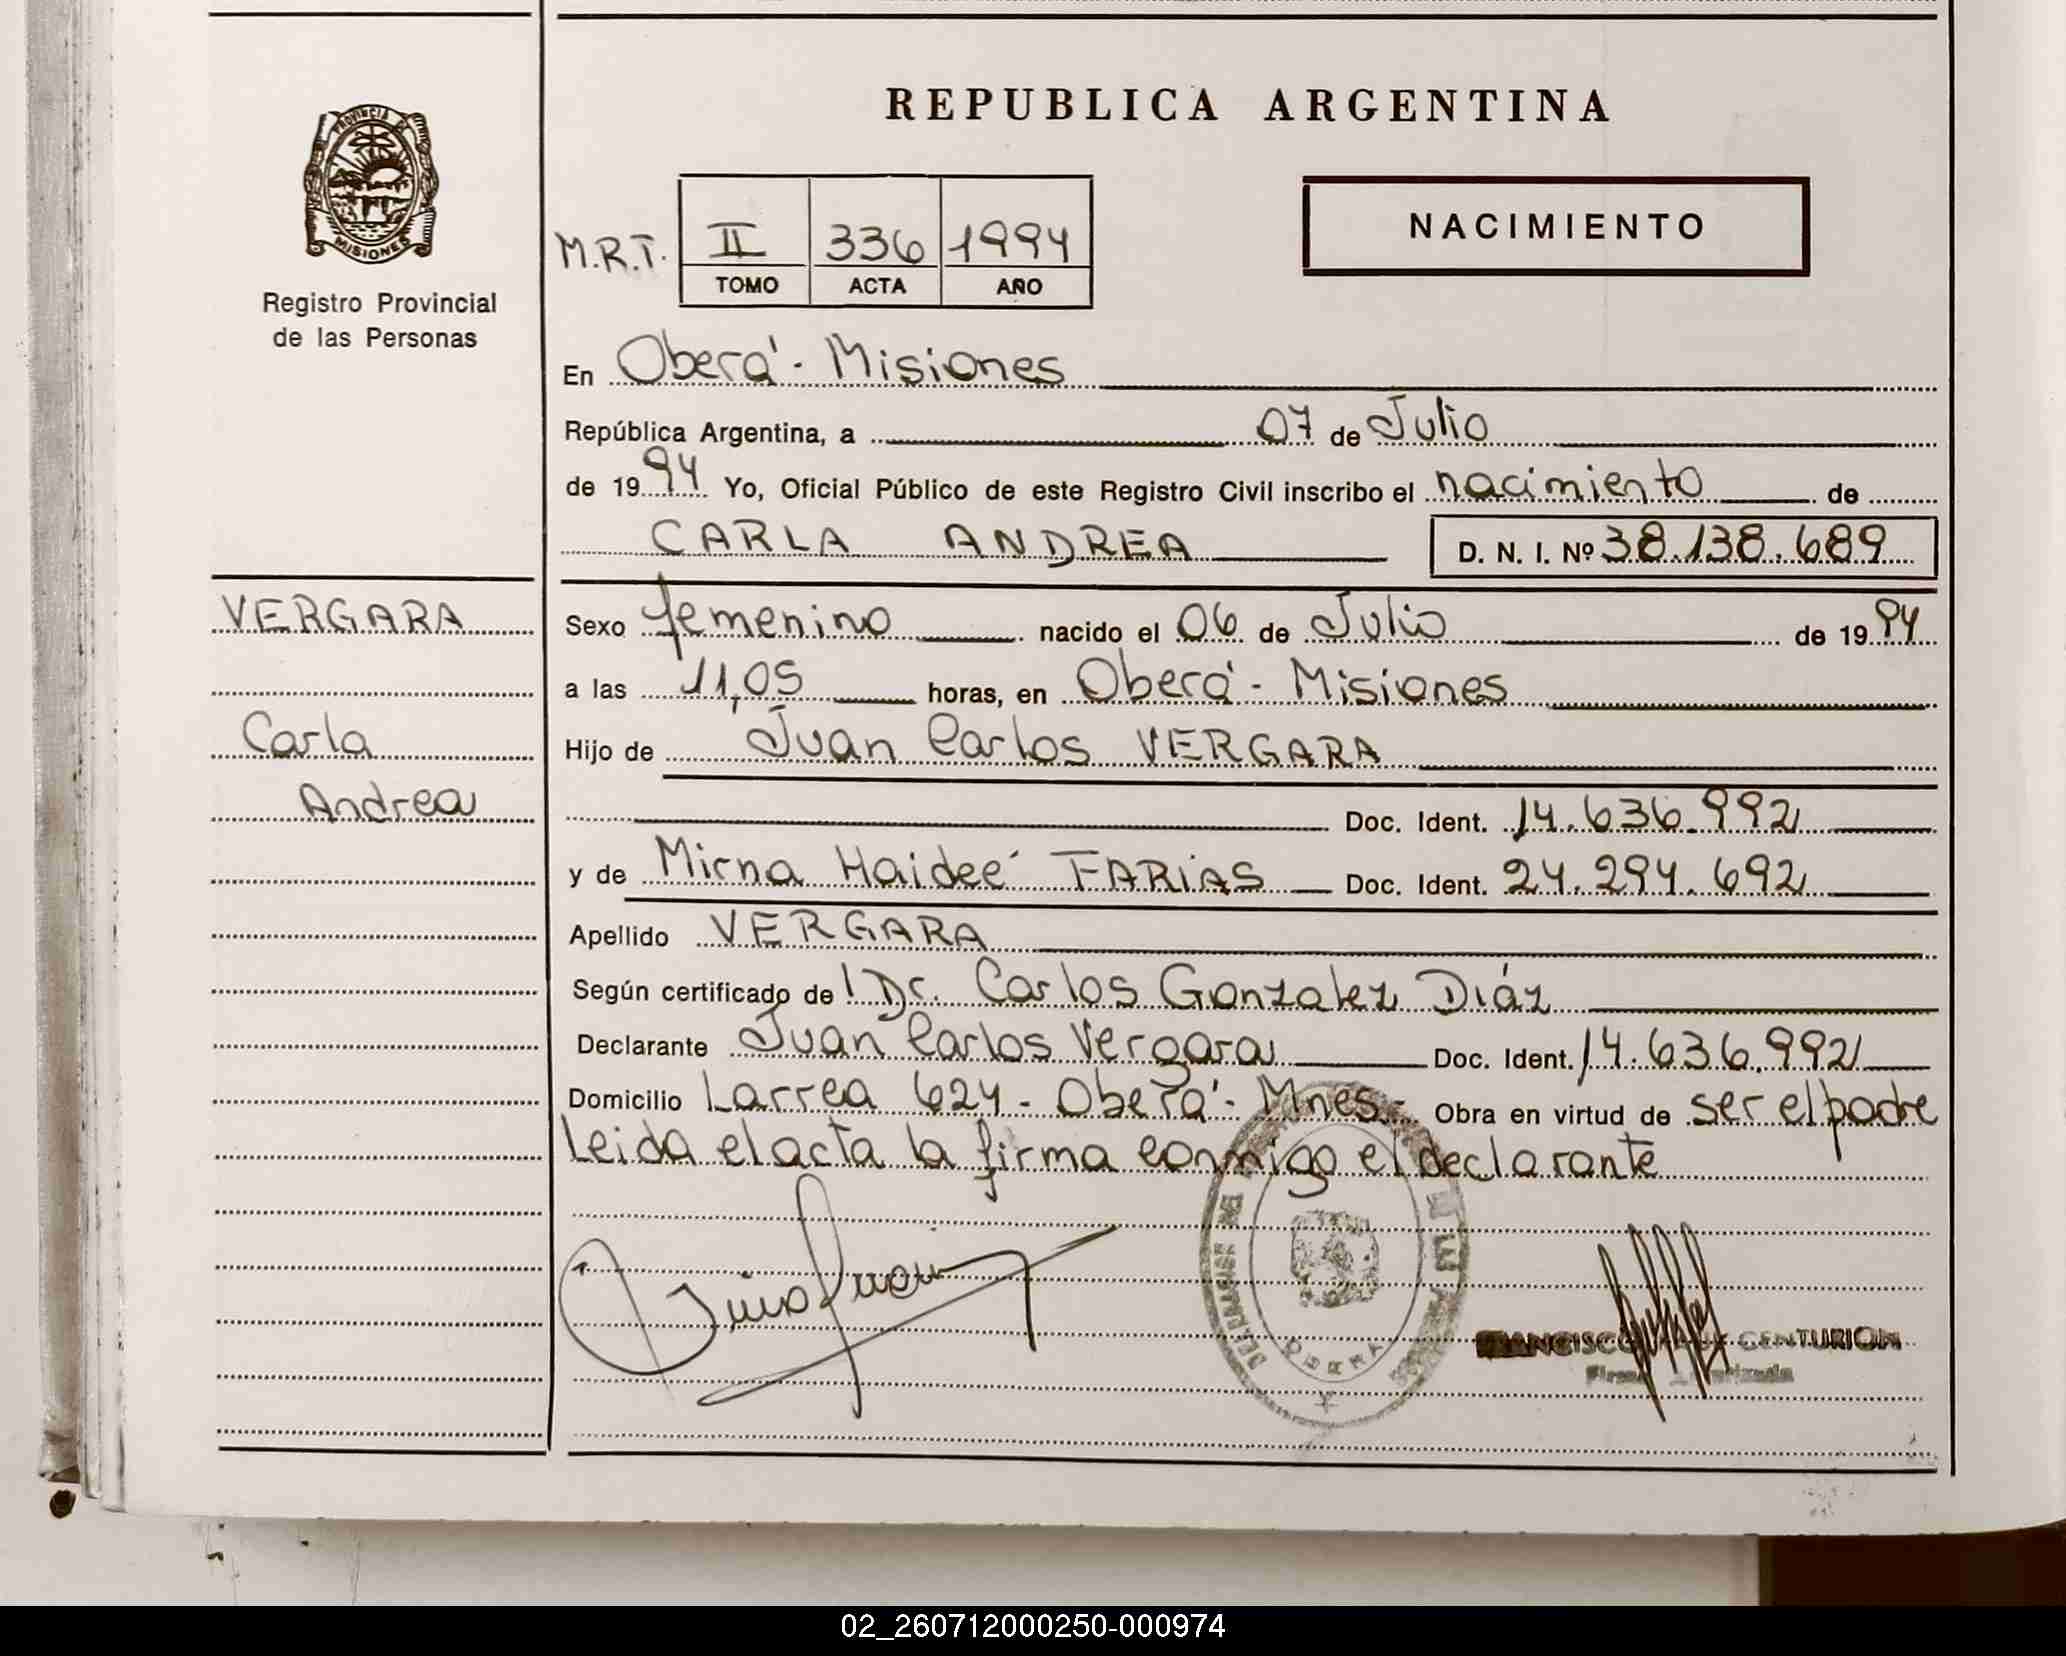 REPUBLICA ARGENTINA
PROVINCIA DE MISIONES
Registro Provincial
de las Personas
M.R.T. II 336 1994
TOMO ACTA AÑO
NACIMIENTO
En Oberá - Misiones
República Argentina, a 07 de Julio
de 1994 Yo, Oficial Público de este Registro Civil inscribo el nacimiento de
CARLA ANDREA D. N. I. Nº 38.138.689
VERGARA
Carla
Andrea
Sexo femenino nacido el 06 de Julio de 1994
a las 11,05 horas, en Oberá - Misiones
Hijo de Juan Carlos VERGARA
Doc. Ident. 14.636.992
y de Mirna Haideé FARiAS Doc. Ident. 24.294.692
Apellido VERGARA
Según certificado de l Dr. Carlos Gonzalez Diáz
Declarante Juan Carlos Vergara Doc. Ident. 14.636.992
Domicilio Larrea 624 - Oberá - Mnes - Obra en virtud de ser el padre
Leida el acta la firma conmigo el declarante
FRANCISCO CENTURION
Firma Autorizada
02_260712000250-000974